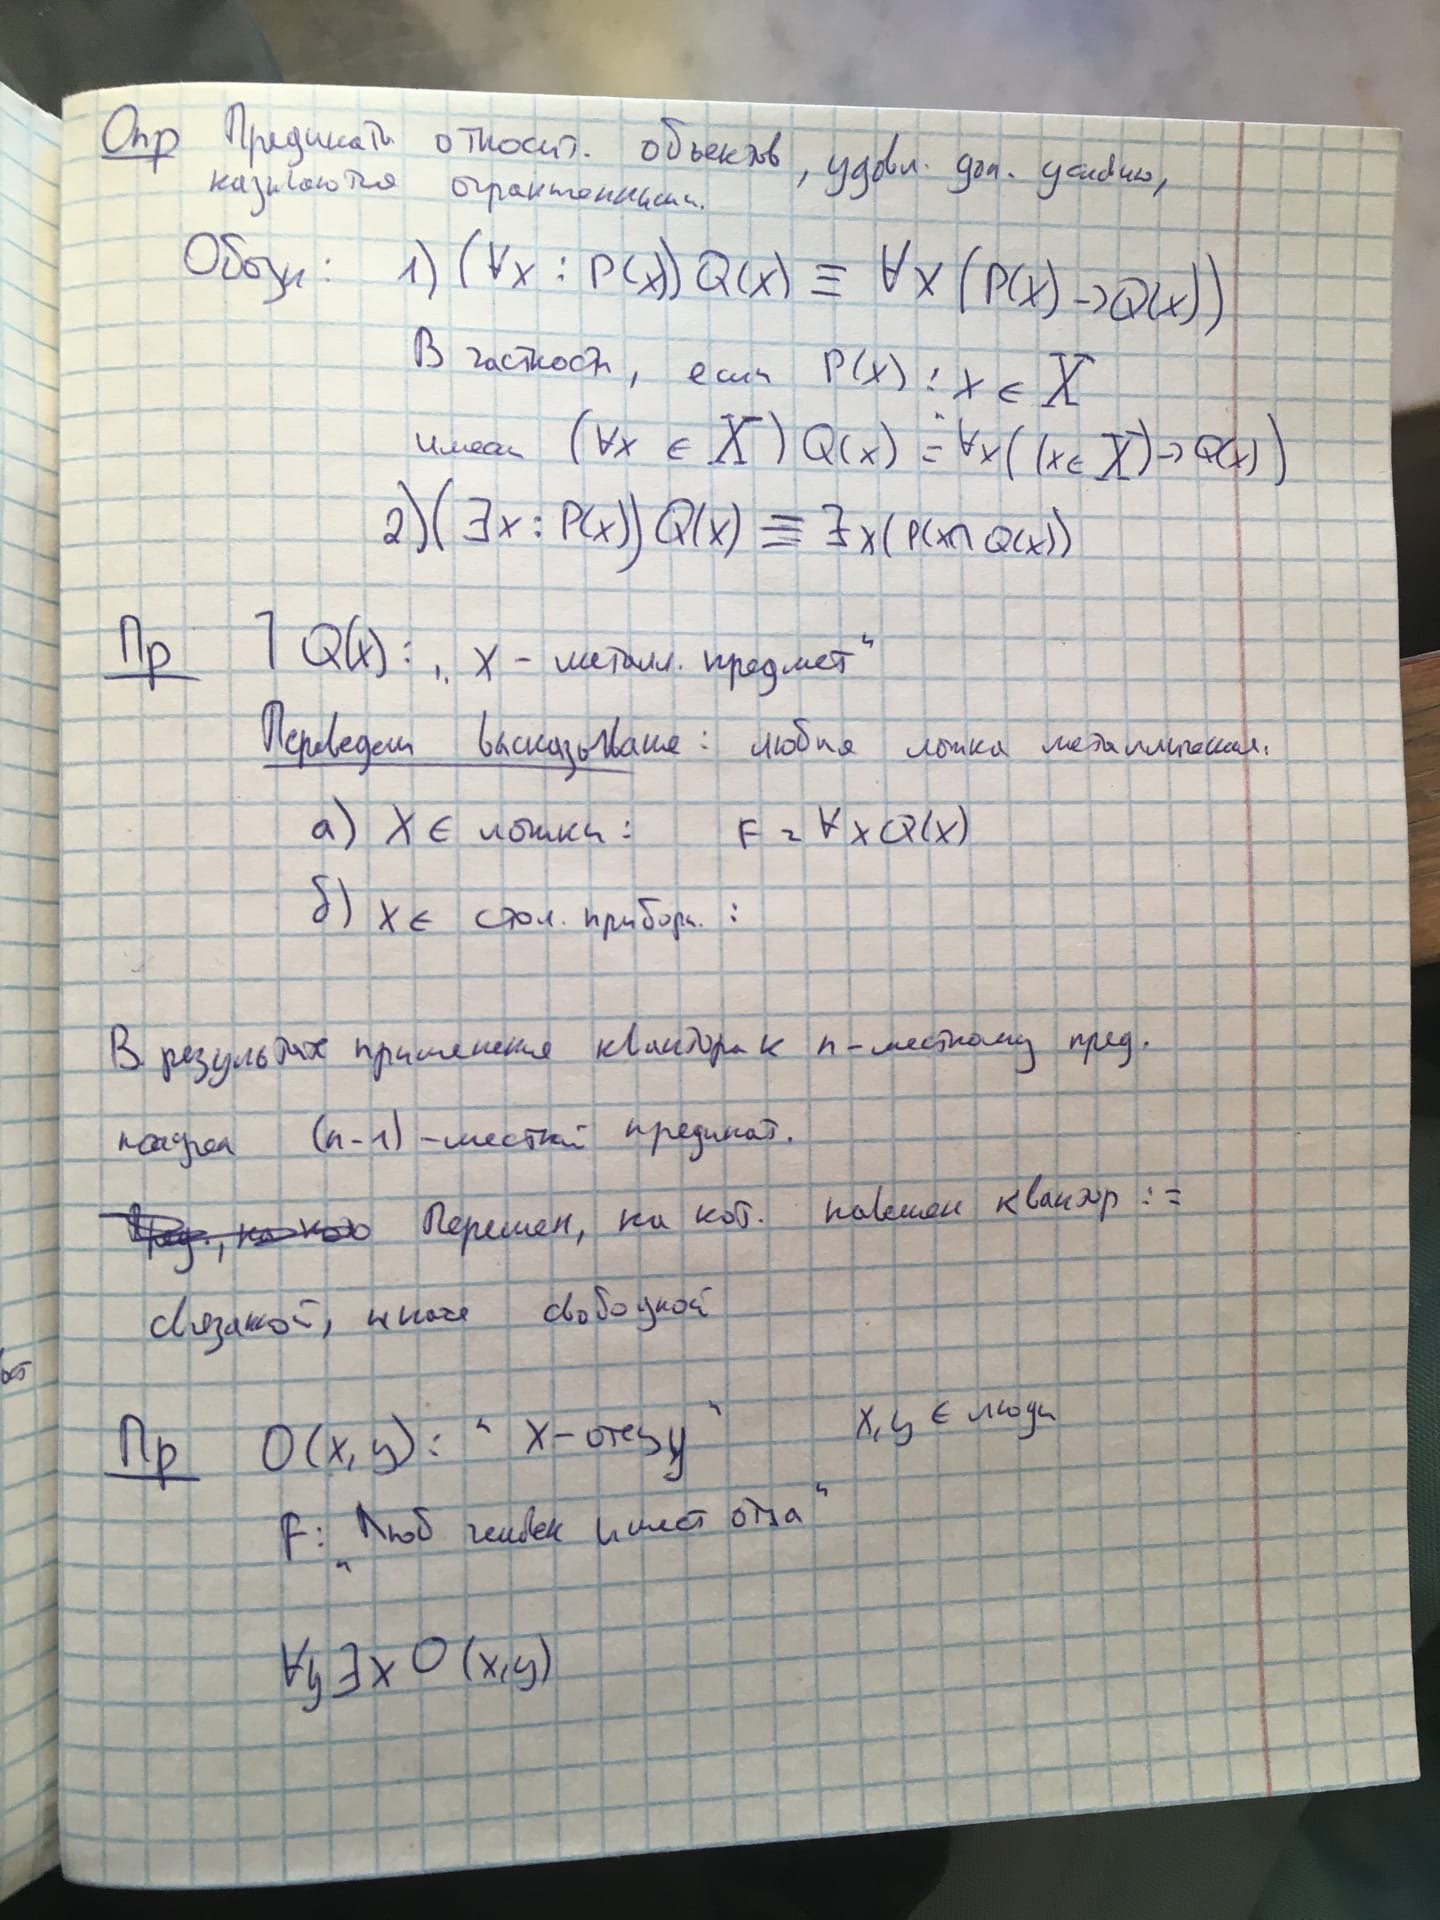 Опр Предикаты относит. объектов, удовл. доп. условию,
называются ограниченными.
Обозн: 1) (∀x : P(x)) Q(x) ≡ ∀x (P(x) → Q(x))
В частност, если P(x) : x ∈ X
имеем (∀x ∈ X) Q(x) = ∀x ((x ∈ X) → Q(x))
2) (∃x : P(x)) Q(x) ≡ ∃x (P(x) ∧ Q(x))
Пр ⅂ Q(x) : „ x - металл. предмет“
Переведем высказывание: любая ложка металлическая.
а) X ∈ ложки : F = ∀x Q(x)
б) x ∈ стол. прибор. :
В результате применения квантора к n-местному пред.
получаем (n-1)-местный предикат.
Перемен, на кот. навешен квантор :=
связаной, иначе свободной
Пр O(x, y) : “ X - отец y ” x, y ∈ люди
F: „ Люб человек имеет отца“
∀y ∃x O (x, y)